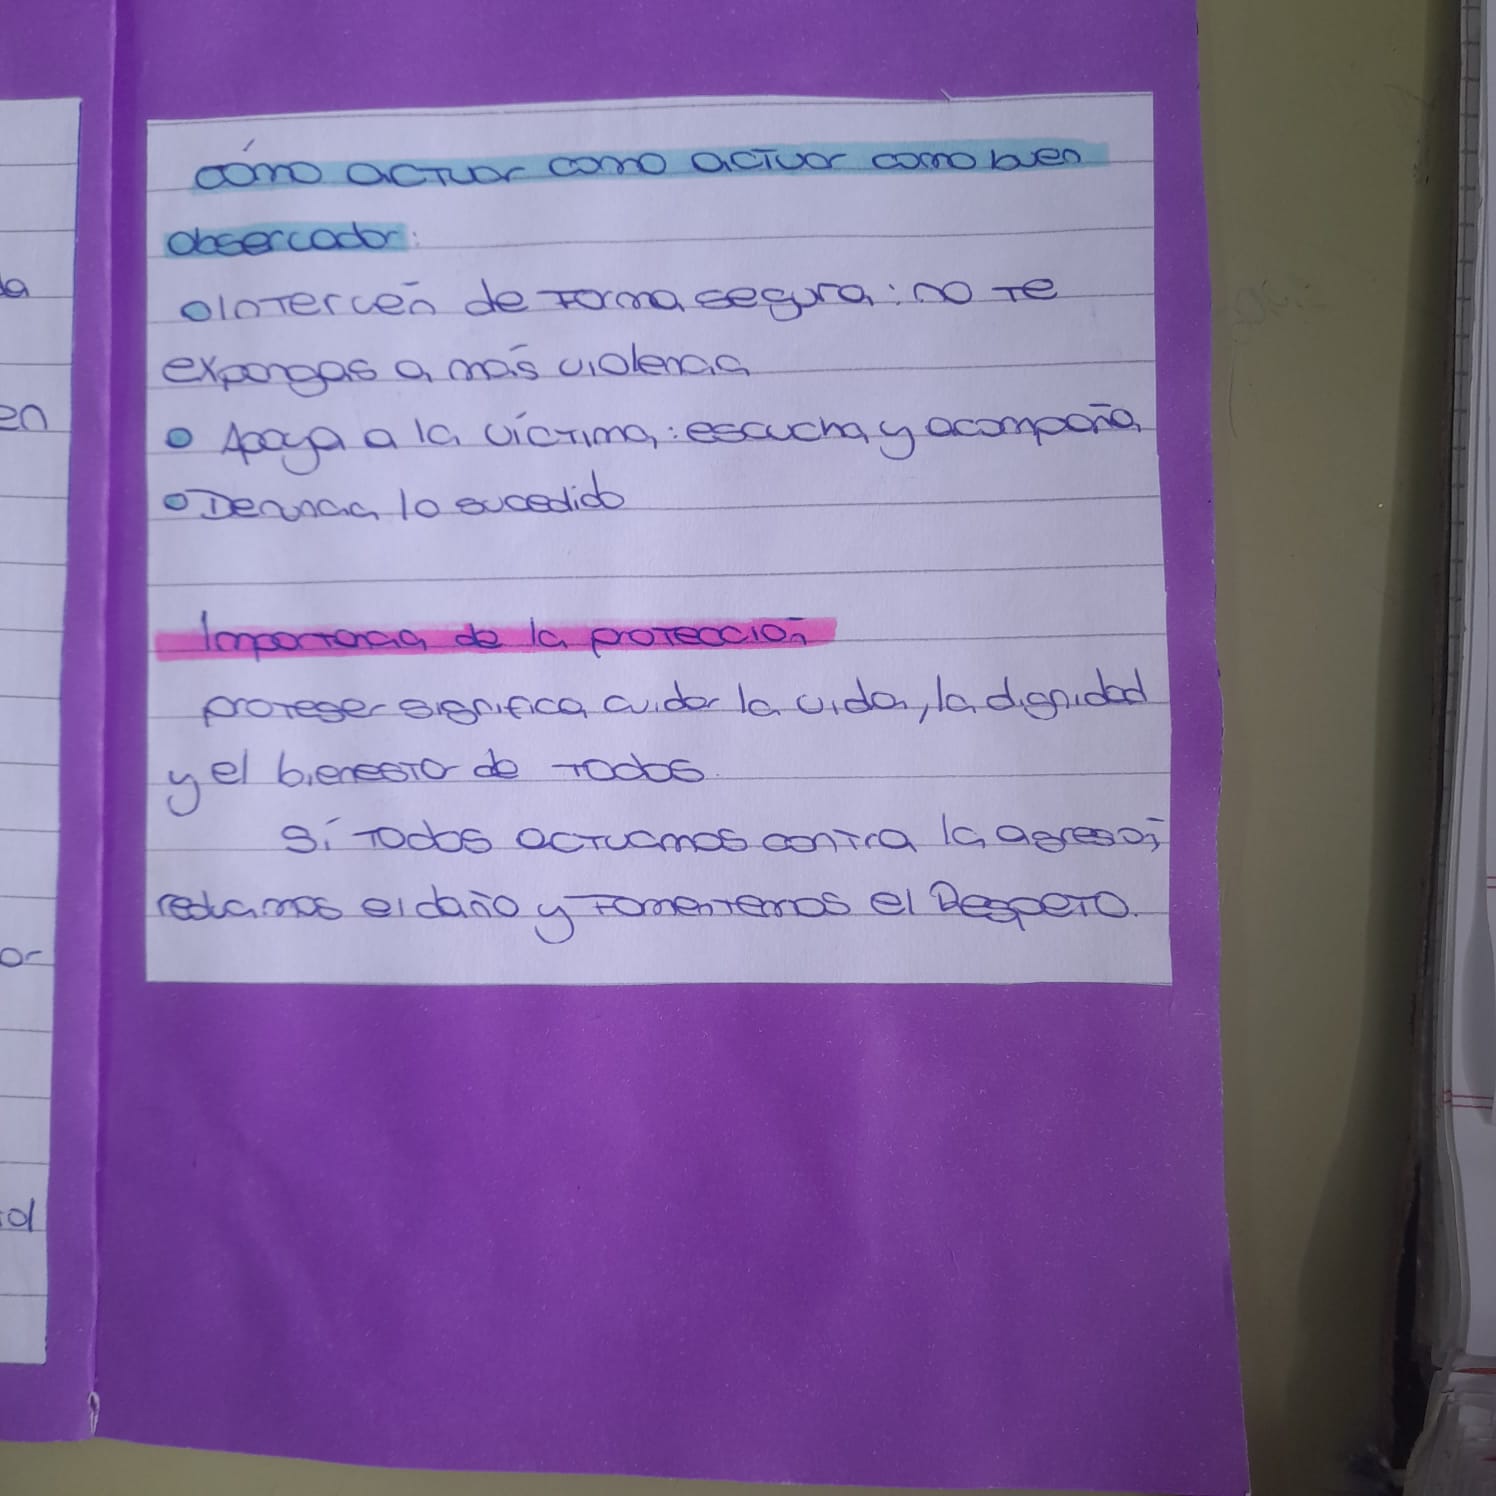 cómo actuar como actuar como buen
observador:
Intervén de forma segura: no te
expongas a más violencia
Apoya a la víctima: escucha y acompaña
Denuncia lo sucedido
Importancia de la protección
proteger significa cuidar la vida, la dignidad
y el bienestar de todos.
Sí todos actuamos contra la agresión
reducimos el daño y fomentemos el Respeto.
la
en
or